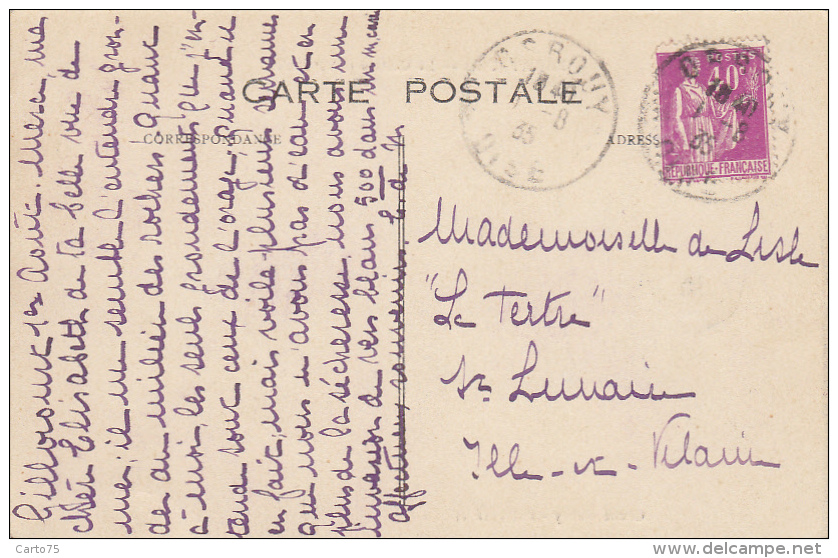 CARTE POSTALE
CORRESPONDANCE
ADRESSE
POSTES
40c
RÉPUBLIQUE-FRANÇAISE
OISE
35
Mademoiselle de Lisle
"Le Tertre"
St Lunaire
Ille-et-Vilaine
1er Août. Merci, ma
chère Elisabeth de ta belle vue de
mer; il me semble l'entendre gron-
der au milieu des roches. Quant
à moi, les seuls grondements que j'en-
tend sont ceux de l'orage, quand il
en fait, mais voilà plusieurs semaines
que nous n'avons pas d'eau, et en
plus de la sécheresse, nous avons une
invasion de vers blancs 500 dans un m. carré
affectueux souvenirs.
© Carto75
delcampe.net